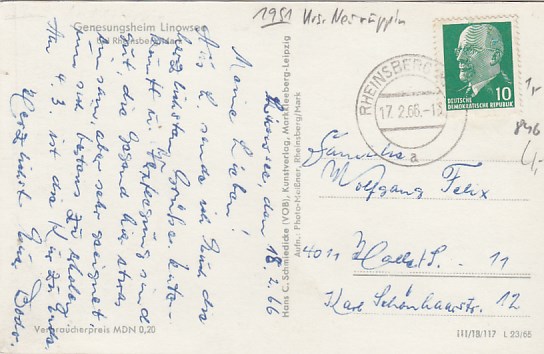 1951 Krs. Neuruppin
Genesungsheim Linowsee
bei Rheinsberg/Mark
Linowsee, den 18.2.66
Meine Lieben!
Aus L. sende ich Euch die
herzlichsten Grüße. Unter-
kunft u. Verpflegung sind
gut, die Gegend hier etwas
einsam, aber sehr geeignet
um sich bestens zu erholen.
Am 4.3. ist die Kur zu Ende.
Herzlichst Eure Dodo.
Verbraucherpreis MDN 0,20
Hans C. Schmiedicke (VOB), Kunstverlag, Markkleeberg-Leipzig
Aufn.: Photo-Meißner, Rheinsberg/Mark
RHEINSBERG
17.2.66.-1
a
10
DEUTSCHE
DEMOKRATISCHE REPUBLIK
1,-
846
Familie
Wolfgang Felix
4011 Halle/S. - 11
Karl Schönhaarstr. 12
III/18/117 L 23/65